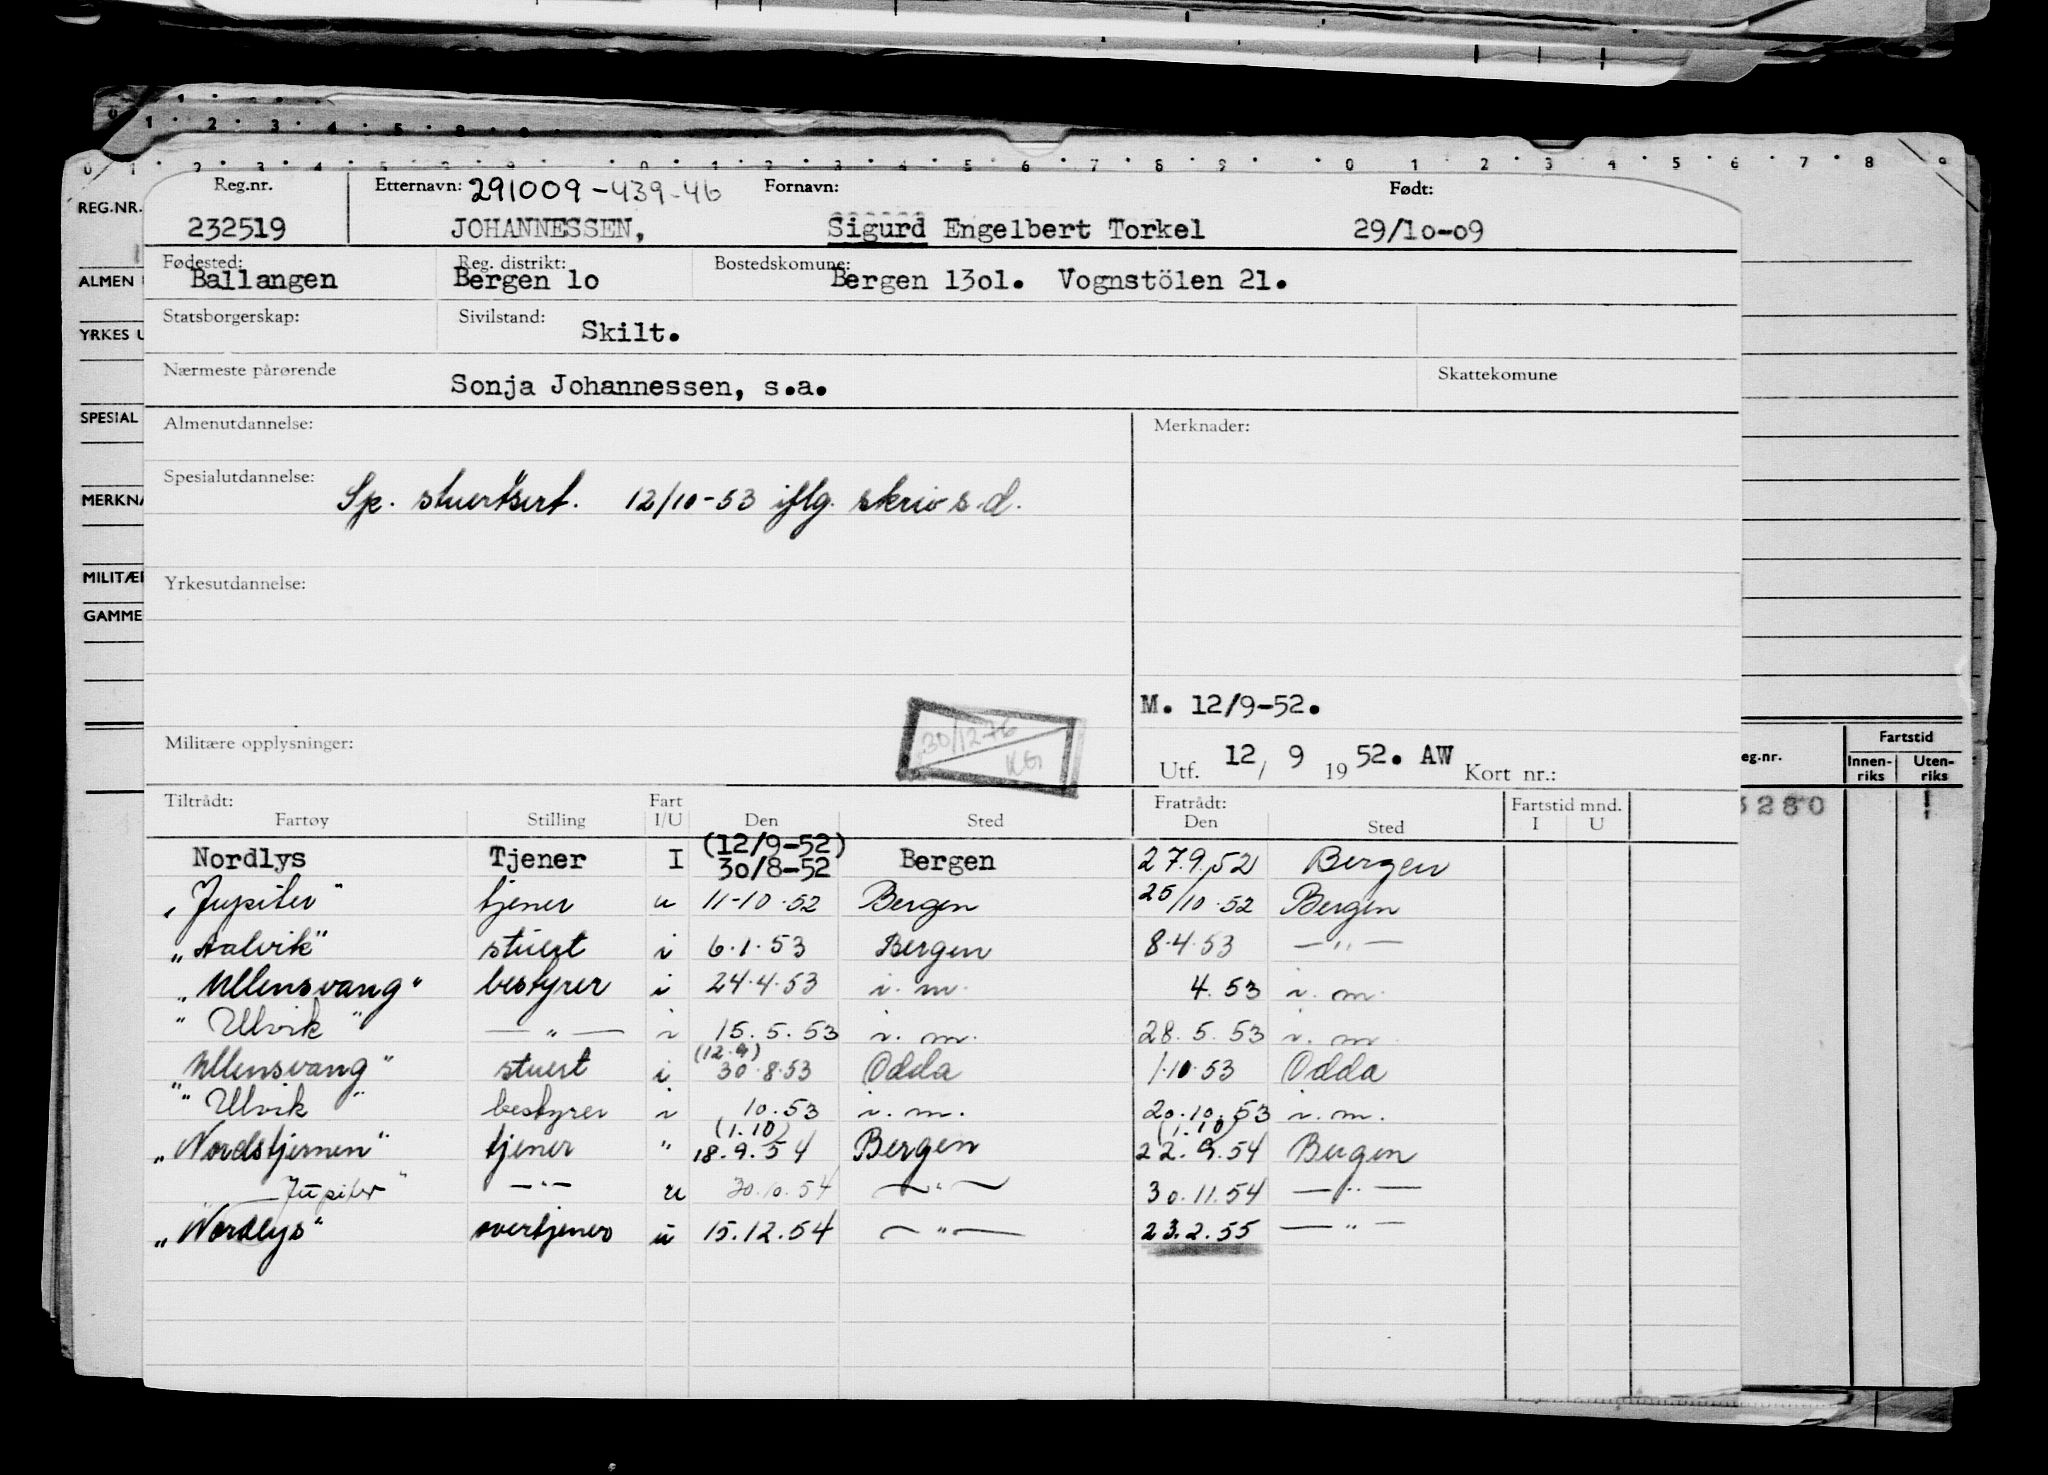 0 1 2 3 4 5 6 7 8 9 0 1 2 3 4 5 6 7 8 9
Reg.nr. Etternavn: 291009-439-46 Fornavn: Født:
REG.NR.
232519 JOHANNESSEN, Sigurd Engelbert Torkel 29/10-09
Fødested: Reg. distrikt: Bostedskomune:
ALMEN Ballangen Bergen 10 Bergen 1301. Vognstölen 21.
Statsborgerskap: Sivilstand: Skilt.
YRKES U
Nærmeste pårørende Sonja Johannessen, s.a. Skattekomune
SPESIAL Almenutdannelse: Merknader:
Spesialutdannelse: Sp. stuertsert. 12/10-53 iflg. skriv s.d.
MERKNA
MILITÆR Yrkesutdannelse:
GAMME
M. 12/9-52.
30/12-76
KG
Militære opplysninger: Utf. 12/ 9 1952. AW Kort nr.:
eg.nr. Fartstid
Innen-riks Uten-riks
3280
Tiltrådt: Fart Fratrådt: Fartstid mnd.
Fartøy Stilling I/U Den Sted Den Sted I U
Nordlys Tjener I (12/9-52) 30/8-52 Bergen 27.9.52 Bergen
"Jupiter" tjener u 11-10.52 Bergen 25/10.52 Bergen
"Aalvik" stuert i 6.1.53 Bergen 8.4.53 —"—
"Ullensvang" bestyrer i 24.4.53 i.m. 4.53 i.m.
"Ulvik" —"— i 15.5.53 i.m. 28.5.53 i.m.
"Ullensvang" stuert i (12.9) 30.8.53 Odda 1.10.53 Odda
"Ulvik" bestyrer i 10.53 i.m. 20.10.53 i.m.
"Nordstjernen" tjener " (1.10) 18.9.54 Bergen (1.10) 22.9.54 Bergen
"Jupiter" —"— u 30.10.54 —"— 30.11.54 —"—
"Nordlys" overtjener u 15.12.54 —"— 23.2.55 —"—